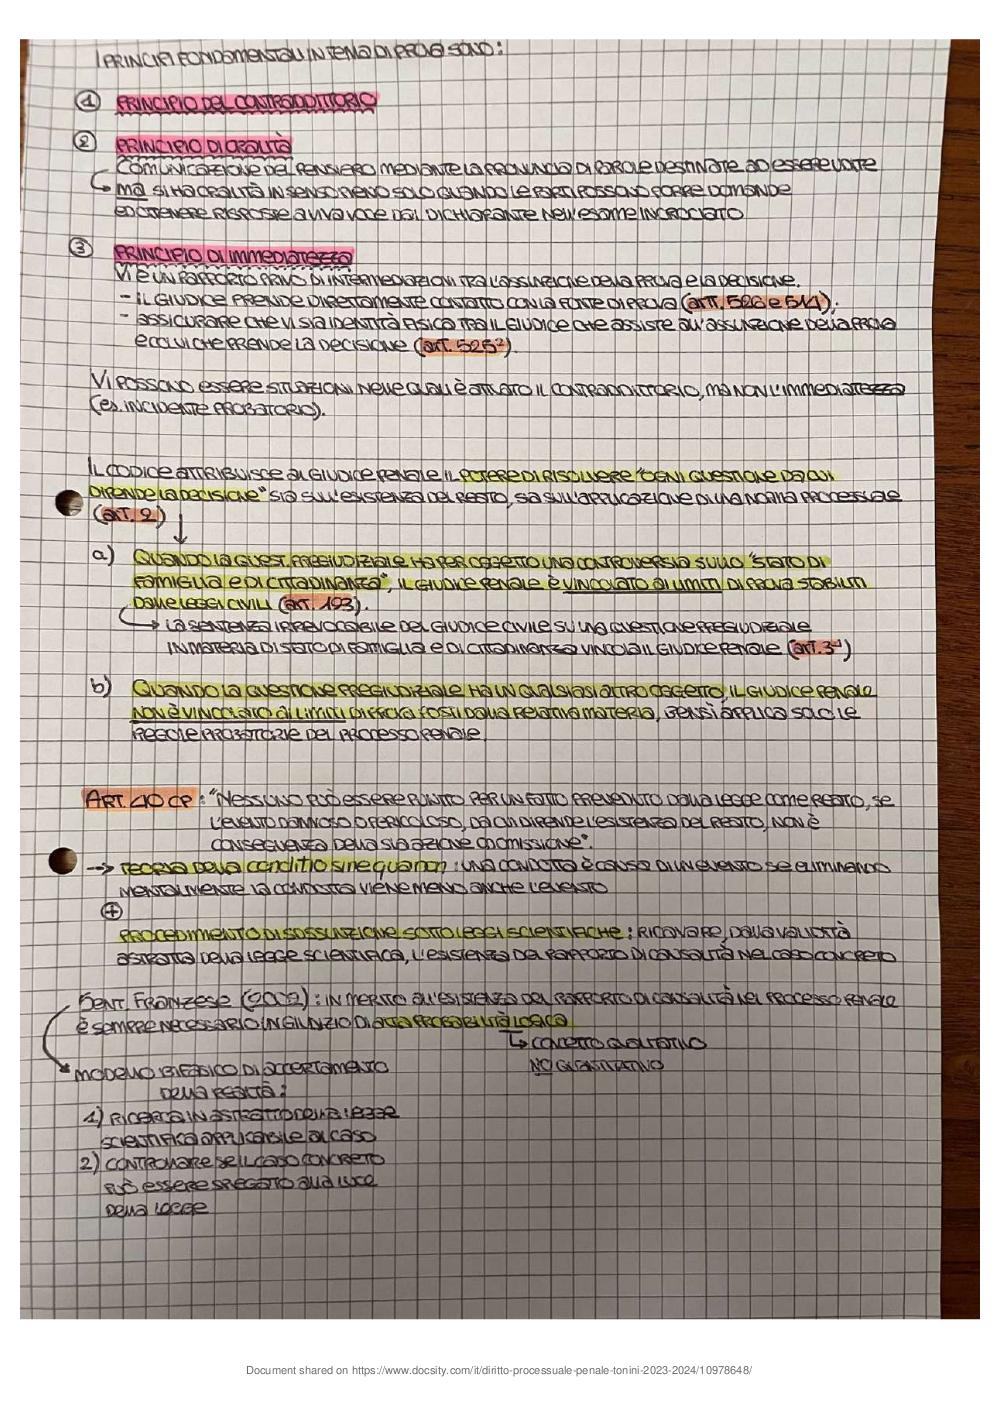 I PRINCIPI FONDAMENTALI IN TEMA DI PROVA SONO:
① PRINCIPIO DEL CONTRADDITTORIO
② PRINCIPIO DI ORALITÀ
COMUNICAZIONE DEL PENSIERO MEDIANTE LA PRONUNCIA DI PAROLE DESTINATE AD ESSERE UDITE
↳ MA SI HA ORALITÀ IN SENSO PIENO SOLO QUANDO LE PARTI POSSONO PORRE DOMANDE
ED OTTENERE RISPOSTE A VIVA VOCE DAL DICHIARANTE NELL'ESAME INCROCIATO
③ PRINCIPIO DI IMMEDIATEZZA
VI È UN RAPPORTO PRIVO DI INTERMEDIAZIONI TRA L'ASSUNZIONE DELLA PROVA E LA DECISIONE.
- IL GIUDICE PRENDE DIRETTAMENTE CONTATTO CON LA FONTE DI PROVA (ARTT. 526 e 511);
- ASSICURARE CHE VI SIA IDENTITÀ FISICA TRA IL GIUDICE CHE ASSISTE ALL'ASSUNZIONE DELLA PROVA
E COLUI CHE PRENDE LA DECISIONE (ART. 525²).
VI POSSONO ESSERE SITUAZIONI NELLE QUALI È ATTUATO IL CONTRADDITTORIO, MA NON L'IMMEDIATEZZA
(ES. INCIDENTE PROBATORIO).
IL CODICE ATTRIBUISCE AL GIUDICE PENALE IL POTERE DI RISOLVERE "OGNI QUESTIONE DA CUI
DIPENDE LA DECISIONE" SIA SULL'ESISTENZA DEL REATO, SIA SULL'APPLICAZIONE DI UNA NORMA PROCESSUALE
(ART. 2) ↓
a) QUANDO LA QUEST. PREGIUDIZIALE HA PER OGGETTO UNA CONTROVERSIA SULLO "STATO DI
FAMIGLIA E DI CITTADINANZA", IL GIUDICE PENALE È VINCOLATO AI LIMITI DI PROVA STABILITI
DALLE LEGGI CIVILI (ART. 193).
↳ LA SENTENZA IRREVOCABILE DEL GIUDICE CIVILE SU UNA QUESTIONE PREGIUDIZIALE
IN MATERIA DI STATO DI FAMIGLIA E DI CITTADINANZA VINCOLA IL GIUDICE PENALE (ART. 3⁴)
b) QUANDO LA QUESTIONE PREGIUDIZIALE HA UN QUALSIASI ALTRO OGGETTO, IL GIUDICE PENALE
NON È VINCOLATO AI LIMITI DI PROVA POSTI DALLA RELATIVA MATERIA, BENSÌ APPLICA SOLO LE
REGOLE PROBATORIE DEL PROCESSO PENALE.
ART. 40 CP: "NESSUNO PUÒ ESSERE PUNITO PER UN FATTO PREVEDUTO DALLA LEGGE COME REATO, SE
L'EVENTO DANNOSO O PERICOLOSO, DA CUI DIPENDE L'ESISTENZA DEL REATO, NON È
CONSEGUENZA DELLA SUA AZIONE OD OMISSIONE".
→ TEORIA DELLA CONDITIO SINE QUA NON: UNA CONDOTTA È CAUSA DI UN EVENTO SE ELIMINANDO
MENTALMENTE LA CONDOTTA VIENE MENO ANCHE L'EVENTO
⊕
PROCEDIMENTO DI SUSSUNZIONE SOTTO LEGGI SCIENTIFICHE: RICAVARE, DALLA VALIDITÀ
ASTRATTA DELLA LEGGE SCIENTIFICA, L'ESISTENZA DEL RAPPORTO DI CAUSALITÀ NEL CASO CONCRETO
SENT. FRANZESE (2002): IN MERITO ALL'ESISTENZA DEL RAPPORTO DI CAUSALITÀ NEL PROCESSO PENALE
È SEMPRE NECESSARIO UN GIUDIZIO DI ALTA PROBABILITÀ LOGICA
↳ CONCETTO QUALITATIVO
NO QUANTITATIVO
MODELLO BIFASICO DI ACCERTAMENTO
DELLA REALTÀ:
1) RICERCA IN ASTRATTO DELLA LEGGE
SCIENTIFICA APPLICABILE AL CASO
2) CONTROLLARE SE IL CASO CONCRETO
PUÒ ESSERE SPIEGATO ALLA LUCE
DELLA LEGGE
Document shared on https://www.docsity.com/it/diritto-processuale-penale-tonini-2023-2024/10978648/